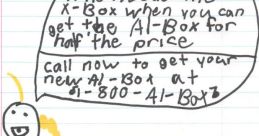 X-Box when you can
get the Al-Box for
half the price
call now to get your
new Al-Box at
1-800-Al-Box